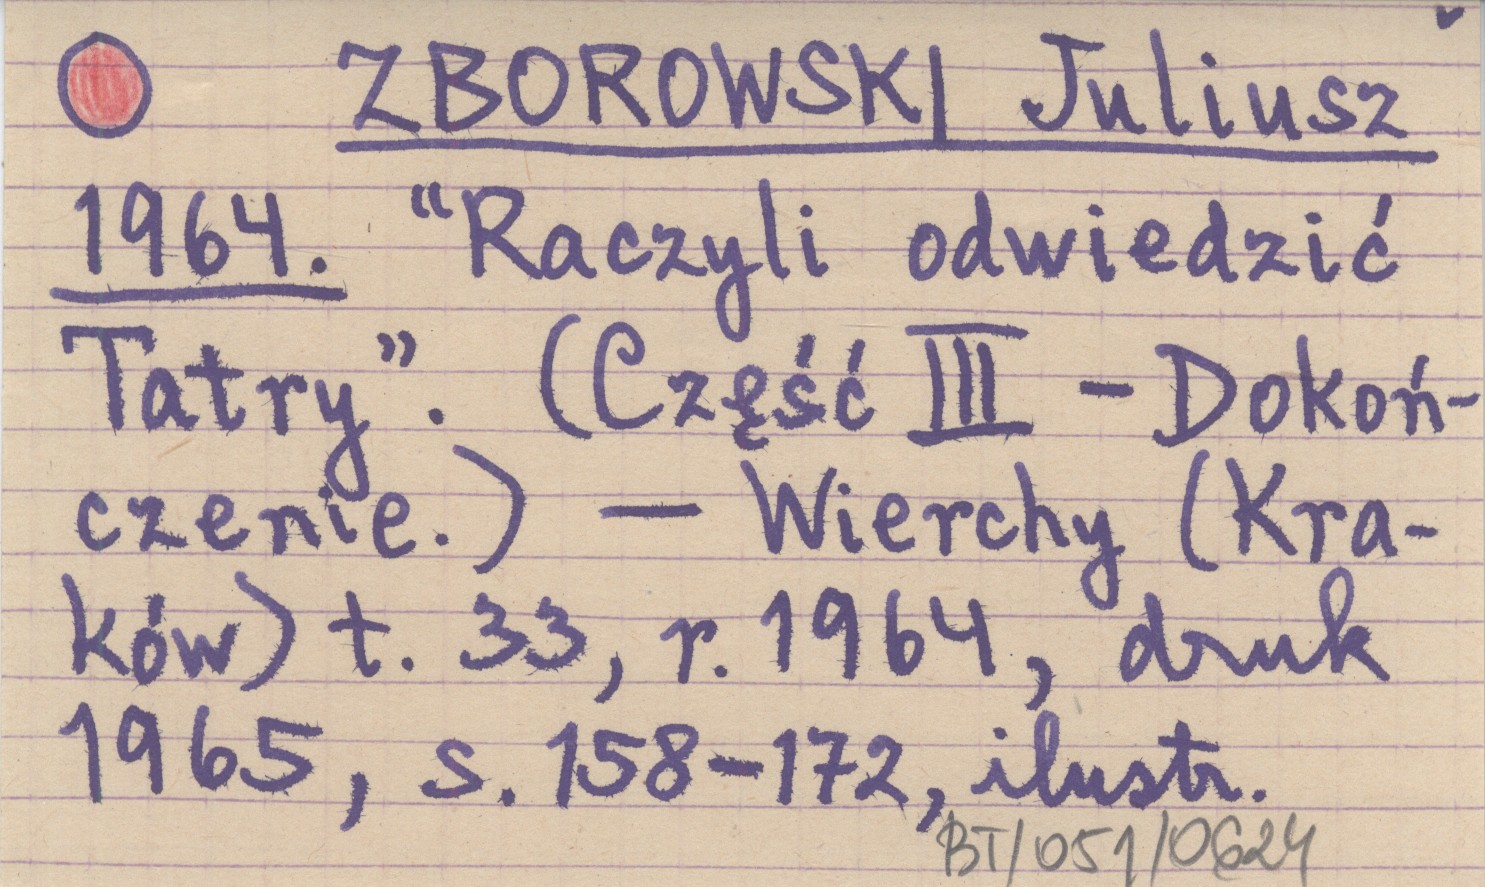 ZBOROWSKI Juliusz
1964. “Raczyli odwiedzić
Tatry”. (Część III - Dokoń-
czenie.) — Wierchy (Kra-
ków) t. 33, r. 1964, druk
1965, s. 158-172, ilustr.
BT/051/0624